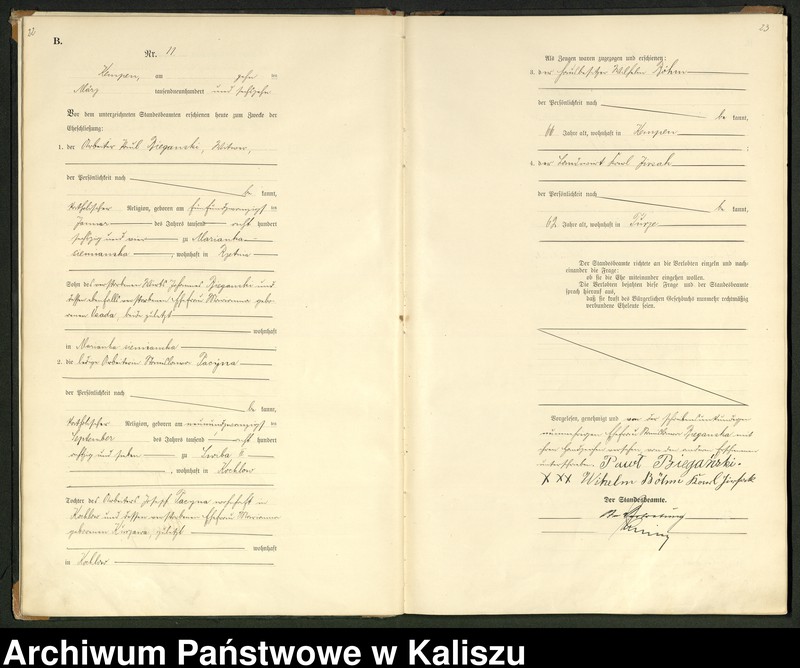 22
B.
Nr. 11
Kempen, am zehn ten
März tausendneunhundert und sechszehn
Vor dem unterzeichneten Standesbeamten erschienen heute zum Zwecke der
Eheschließung:
1. der Arbeiter Paul Bieganski, Witwer,
der Persönlichkeit nach
be kannt,
katholischer Religion, geboren am fünfundzwanzigs ten
Januar des Jahres tausend acht hundert
sechszig und vier zu Marianka
siemianska, wohnhaft in
Sohn des verstorbenen Wirts Johannes Bieganski und
dessen ebenfalls verstorbenen Ehefrau Marianna gebo-
renen Czada, beide zuletzt
wohnhaft
in Marianka siemianska
2. die ledige Arbeiterin Stanislawa Pacyna
der Persönlichkeit nach
be kannt,
katholischer Religion, geboren am neunundzwanzigs ten
September des Jahres tausend acht hundert
achtzig und sieben zu
, wohnhaft in Kochlow
Tochter des Arbeiters Josef Pacyna wohnhaft in
Kochlow und dessen verstorbenen Ehefrau Marianna
geborenen Kurzawa, zuletzt
wohnhaft
in Kochlow
23
Als Zeugen waren zugezogen und erschienen:
3. der Hausbesitzer Wilhelm Böhm
der Persönlichkeit nach
be kannt,
66 Jahre alt, wohnhaft in Kempen
;
4. der Landwirt Karl
der Persönlichkeit nach
be kannt,
62 Jahre alt, wohnhaft in
Der Standesbeamte richtete an die Verlobten einzeln und nach-
einander die Frage:
ob sie die Ehe miteinander eingehen wollen.
Die Verlobten bejahten diese Frage und der Standesbeamte
sprach hierauf aus,
daß sie kraft des Bürgerlichen Gesetzbuchs nunmehr rechtmäßig
verbundene Eheleute seien.
Vorgelesen, genehmigt und von der schreibensunkundigen
nunmehrigen Ehefrau Stanislawa Bieganska mit
ihren Handzeichen versehen, von den anderen Erschienenen
unterschrieben Paweł Biegański.
XXX Wilhelm Böhm Karl
Der Standesbeamte.
In Vertretung
Archiwum Państwowe w Kaliszu